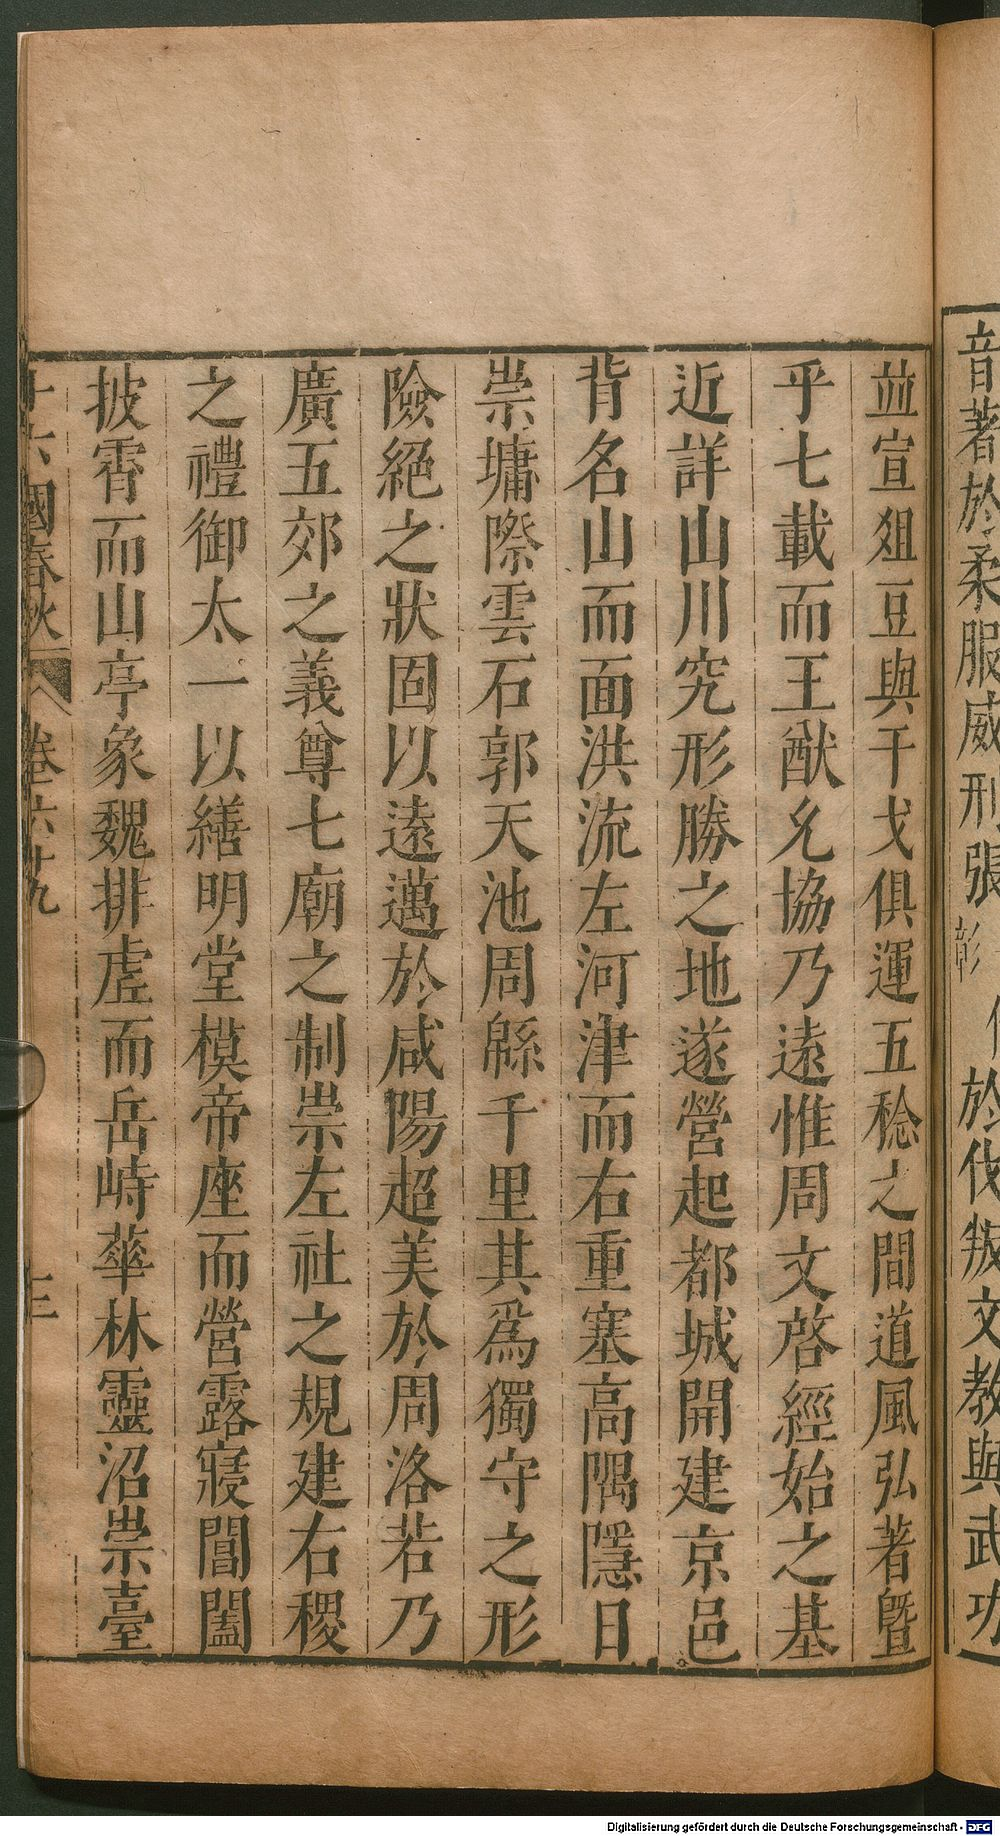 音著於柔服威刑張彰於伐叛文教與武功
並宣俎豆與干戈俱運五稔之間道風弘著曁
乎七載而王猷允協乃遠惟周文啓經始之基
近詳山川究形勝之地遂營起都城開建京邑
背名山而面洪流左河津而右重塞高隅隱日
崇墉際雲石郭天池周緜千里其爲獨守之形
險絕之狀固以遠邁於咸陽超美於周洛若乃
廣五郊之義尊七廟之制崇左社之規建右稷
之禮御太一以繕明堂模帝座而營露寢閶闔
披霄而山亭象魏排虛而岳峙華林靈沼崇臺
十六國春秋 卷六十九 十三
Digitalisierung gefördert durch die Deutsche Forschungsgemeinschaft - DFG